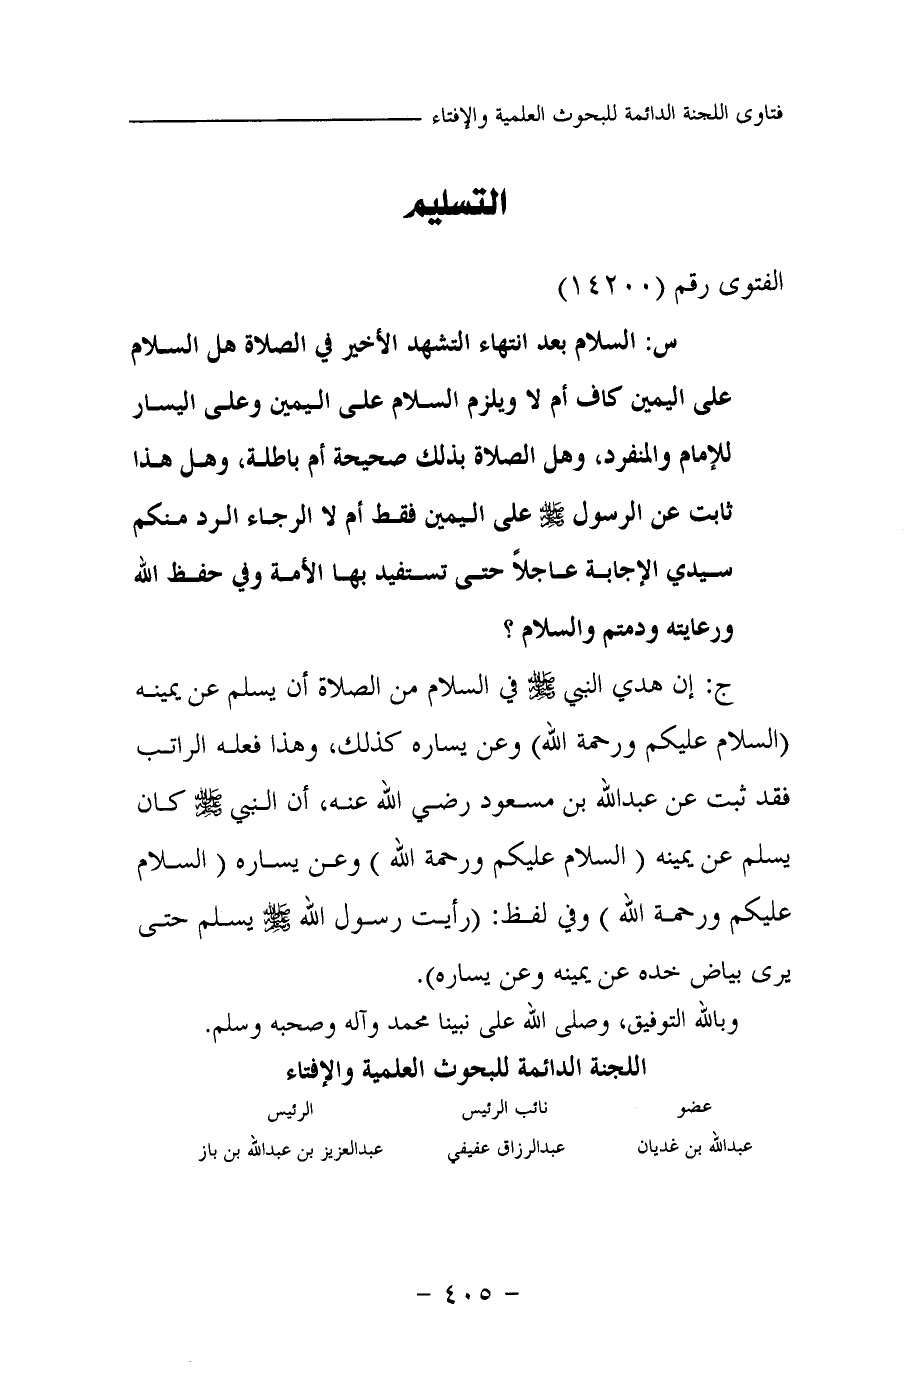 فتاوى اللجنة الدائمة للبحوث العلمية والإفتاء
التسليم
الفتوى رقم (١٤٢٠٠)
س: السلام بعد انتهاء التشهد الأخير في الصلاة هل السلام
على اليمين كاف أم لا ويلزم السلام على اليمين وعلى اليسار
للإمام والمنفرد، وهل الصلاة بذلك صحيحة أم باطلة، وهل هذا
ثابت عن الرسول ﷺ على اليمين فقط أم لا الرجاء الرد منكم
سيدي الإجابة عاجلاً حتى تستفيد بها الأمة وفي حفظ الله
ورعايته ودمتم والسلام ؟
ج: إن هدي النبي ﷺ في السلام من الصلاة أن يسلم عن يمينه
(السلام عليكم ورحمة الله) وعن يساره كذلك، وهذا فعله الراتب
فقد ثبت عن عبدالله بن مسعود رضي الله عنه، أن النبي ﷺ كان
يسلم عن يمينه ( السلام عليكم ورحمة الله ) وعن يساره ( السلام
عليكم ورحمة الله ) وفي لفظ: (رأيت رسول الله ﷺ يسلم حتى
يرى بياض خده عن يمينه وعن يساره).
وبالله التوفيق، وصلى الله على نبينا محمد وآله وصحبه وسلم.
اللجنة الدائمة للبحوث العلمية والإفتاء
عضو نائب الرئيس الرئيس
عبدالله بن غديان عبدالرزاق عفيفي عبدالعزيز بن عبدالله بن باز
- ٤٠٥ -